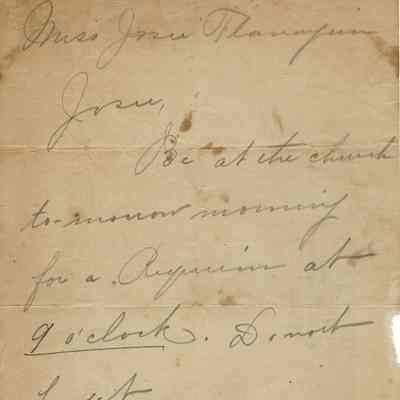 Miss Josie Flanagin
Josie,
Be at the church
to-morrow morning
for a Requiem at
9 o'clock. Do not